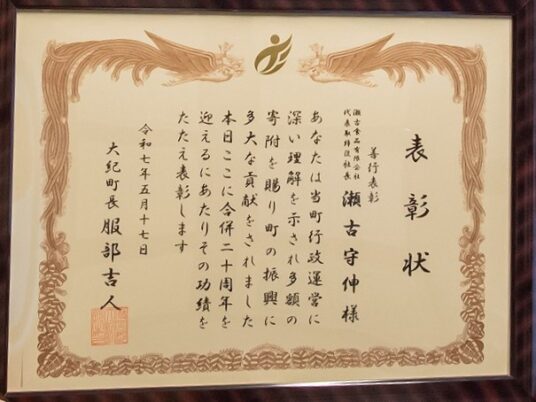 表彰状
善行表彰
瀬古食品有限会社
代表取締役社長
瀬古守伸様
あなたは当町行政運営に
深い理解を示され多額の
寄附を賜り町の振興に
多大な貢献をされました
本日ここに合併二十周年を
迎えるにあたりその功績を
たたえ表彰します
令和七年五月十七日
大紀町長服部吉人